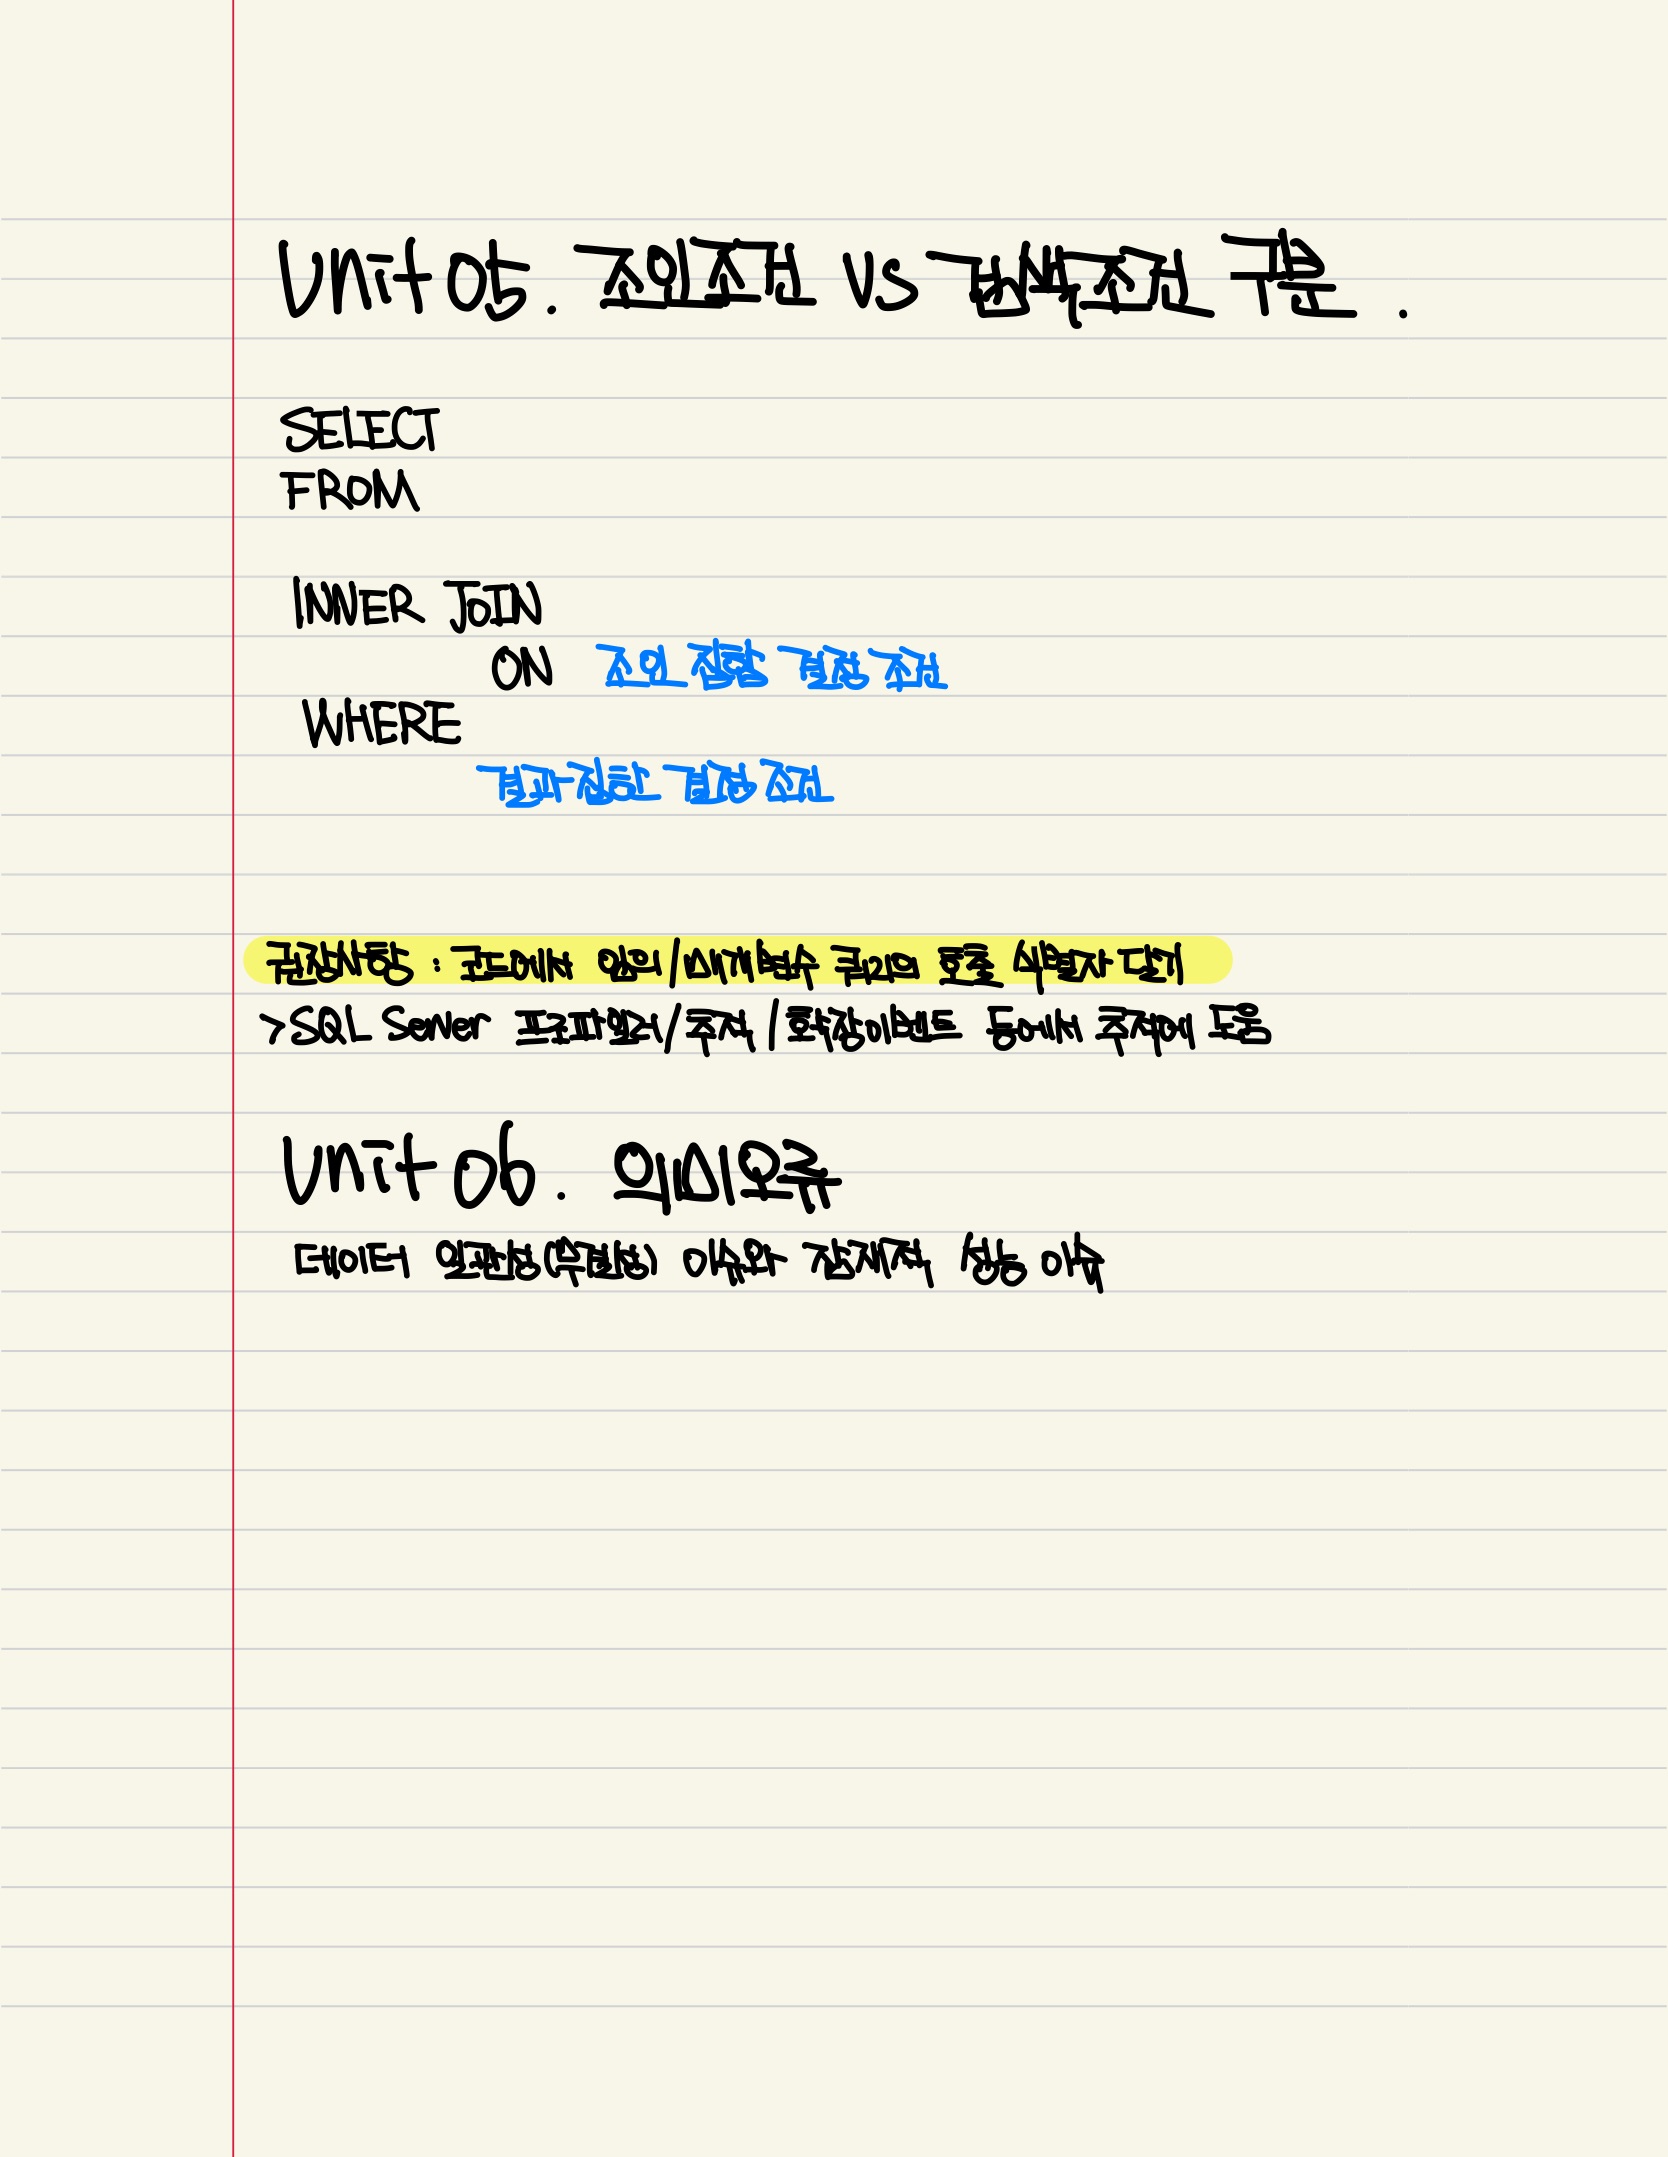 Unit 05. 조인조건 VS 검색조건 구문.
SELECT
FROM
INNER JOIN
ON 조인 집합 결정 조건
WHERE
결과집합 결정 조건
권장사항 : 코드에서 임의/매개변수 쿼리의 호출 식별자 달기
>SQL Server 프로파일러/추적/확장이벤트 등에서 추적에 도움
Unit 06. 의미오류
데이터 일관성(무결성) 이슈와 잠재적 성능 이슈